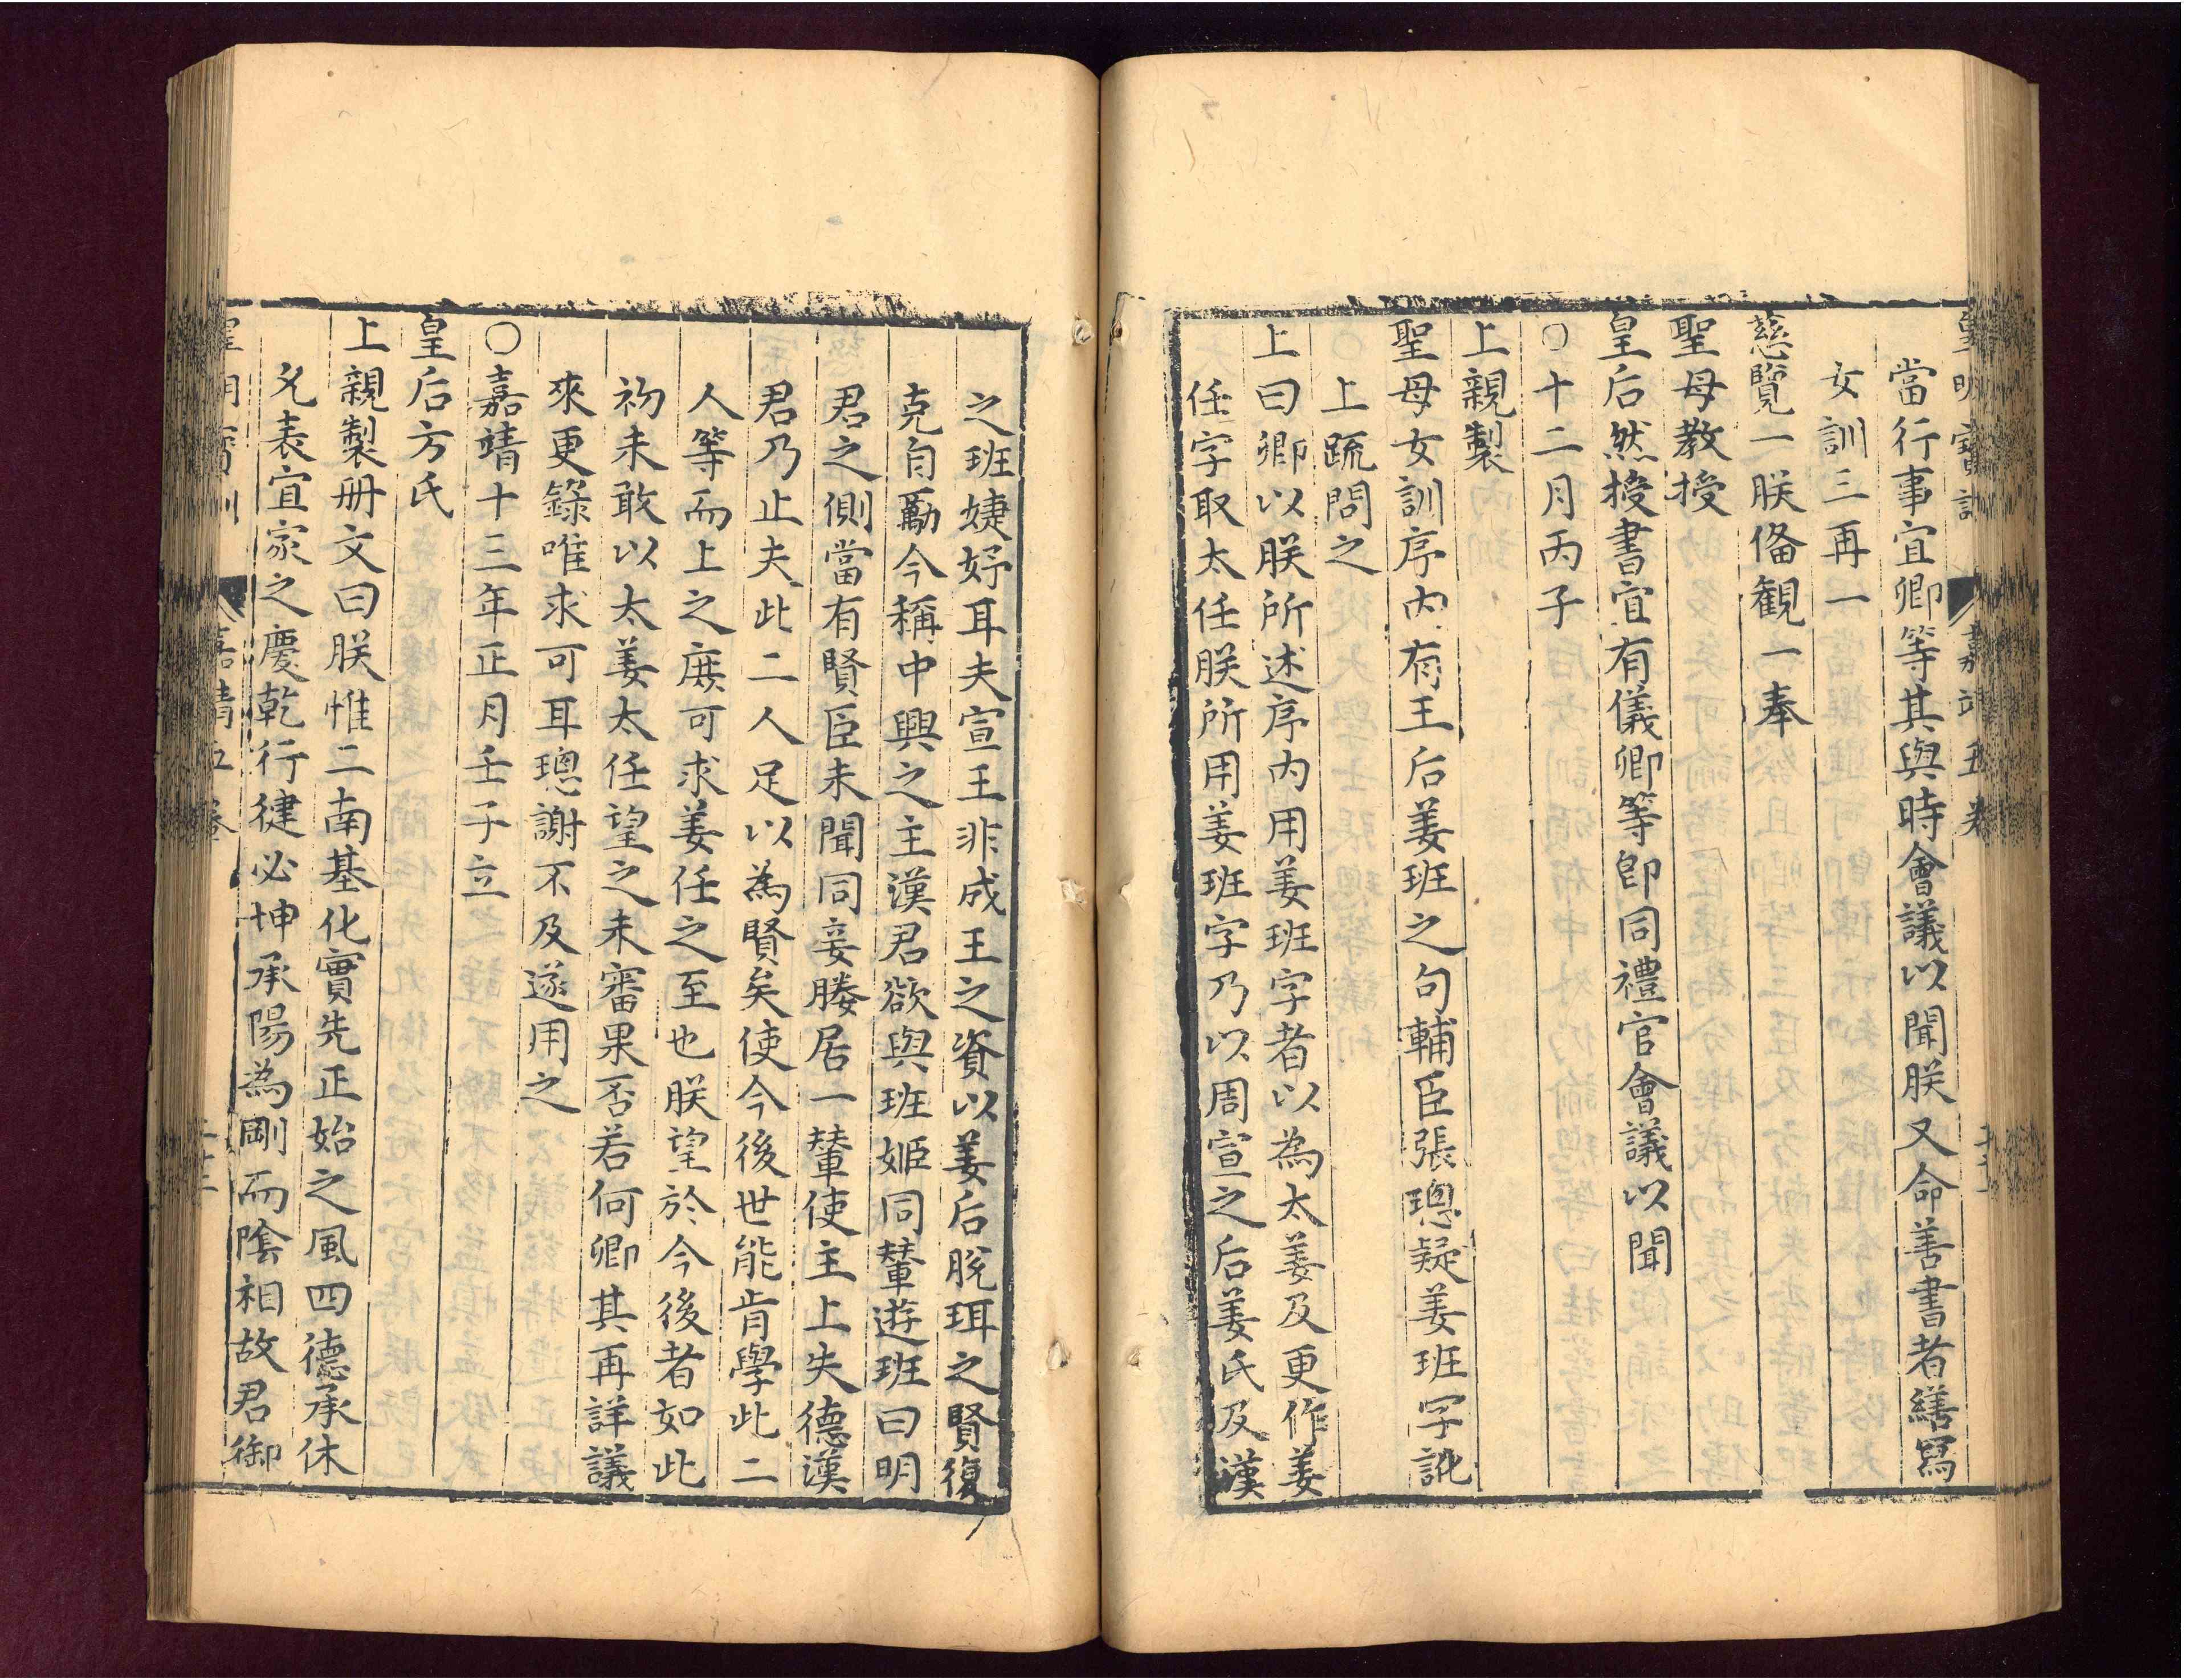 皇明寶訓 嘉靖五卷
當行事宜卿等其與時會議以聞朕又命善書者繕寫
女訓三再一
慈覽一朕俻觀一奉
聖母教授
皇后然授書宜有儀卿等卽同禮官會議以聞
○十二月丙子
上親製
聖母女訓序內有王后姜班之句輔臣張璁疑姜班字訛
上疏問之
上曰卿以朕所述序内用姜班字者以為太姜及更作姜
任字取太任朕所用姜班字乃以周宣之后姜氏及漢
之班婕妤耳夫宣王非成王之資以姜后脫珥之賢復
克自勵今稱中興之主漢君欲與班姬同輦遊班曰明
君之側當有賢臣未聞同妾媵居一輦使主上失德漢
君乃止夫此二人足以為賢矣使今後世能肯學此二
人等而上之庶可求姜任之至也朕望於今後者如此
初未敢以太姜太任望之未審果否若何卿其再詳議
來更錄唯求可耳璁謝不及遂用之
○嘉靖十三年正月壬子立
皇后方氏
上親製册文曰朕惟二南基化實先正始之風四德承休
允表宜家之慶乾行健必坤承陽為剛而陰相故君御
皇明寶訓 嘉靖五卷